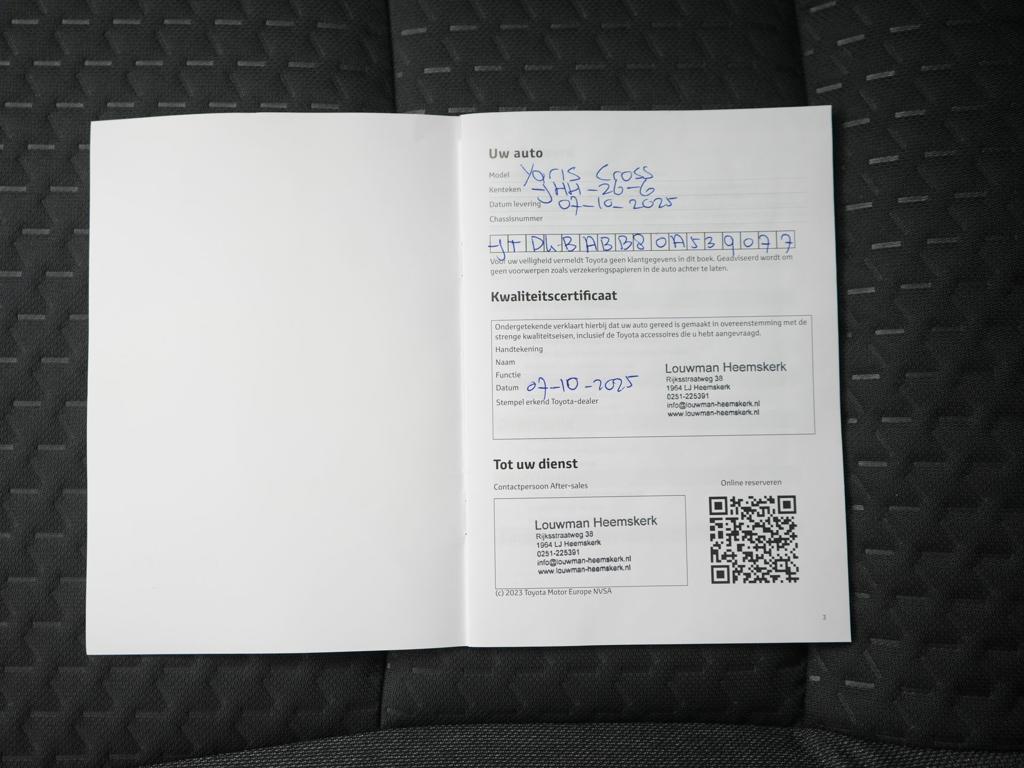 Uw auto
Model Yaris Cross
Kenteken JHH-26-6
Datum levering 07-10-2025
Chassisnummer
Voor uw veiligheid vermeldt Toyota geen klantgegevens in dit boek. Geadviseerd wordt om
geen voorwerpen zoals verzekeringspapieren in de auto achter te laten.
Kwaliteitscertificaat
Ondergetekende verklaart hierbij dat uw auto gereed is gemaakt in overeenstemming met de
strenge kwaliteitseisen, inclusief de Toyota accessoires die u hebt aangevraagd.
Handtekening
Naam
Functie
Datum 07-10-2025
Stempel erkend Toyota-dealer
Louwman Heemskerk
Rijksstraatweg 38
1964 LJ Heemskerk
0251-225391
info@louwman-heemskerk.nl
www.louwman-heemskerk.nl
Tot uw dienst
Contactpersoon After-sales
Online reserveren
Louwman Heemskerk
Rijksstraatweg 38
1964 LJ Heemskerk
0251-225391
info@louwman-heemskerk.nl
www.louwman-heemskerk.nl
(c) 2023 Toyota Motor Europe NVSA
3